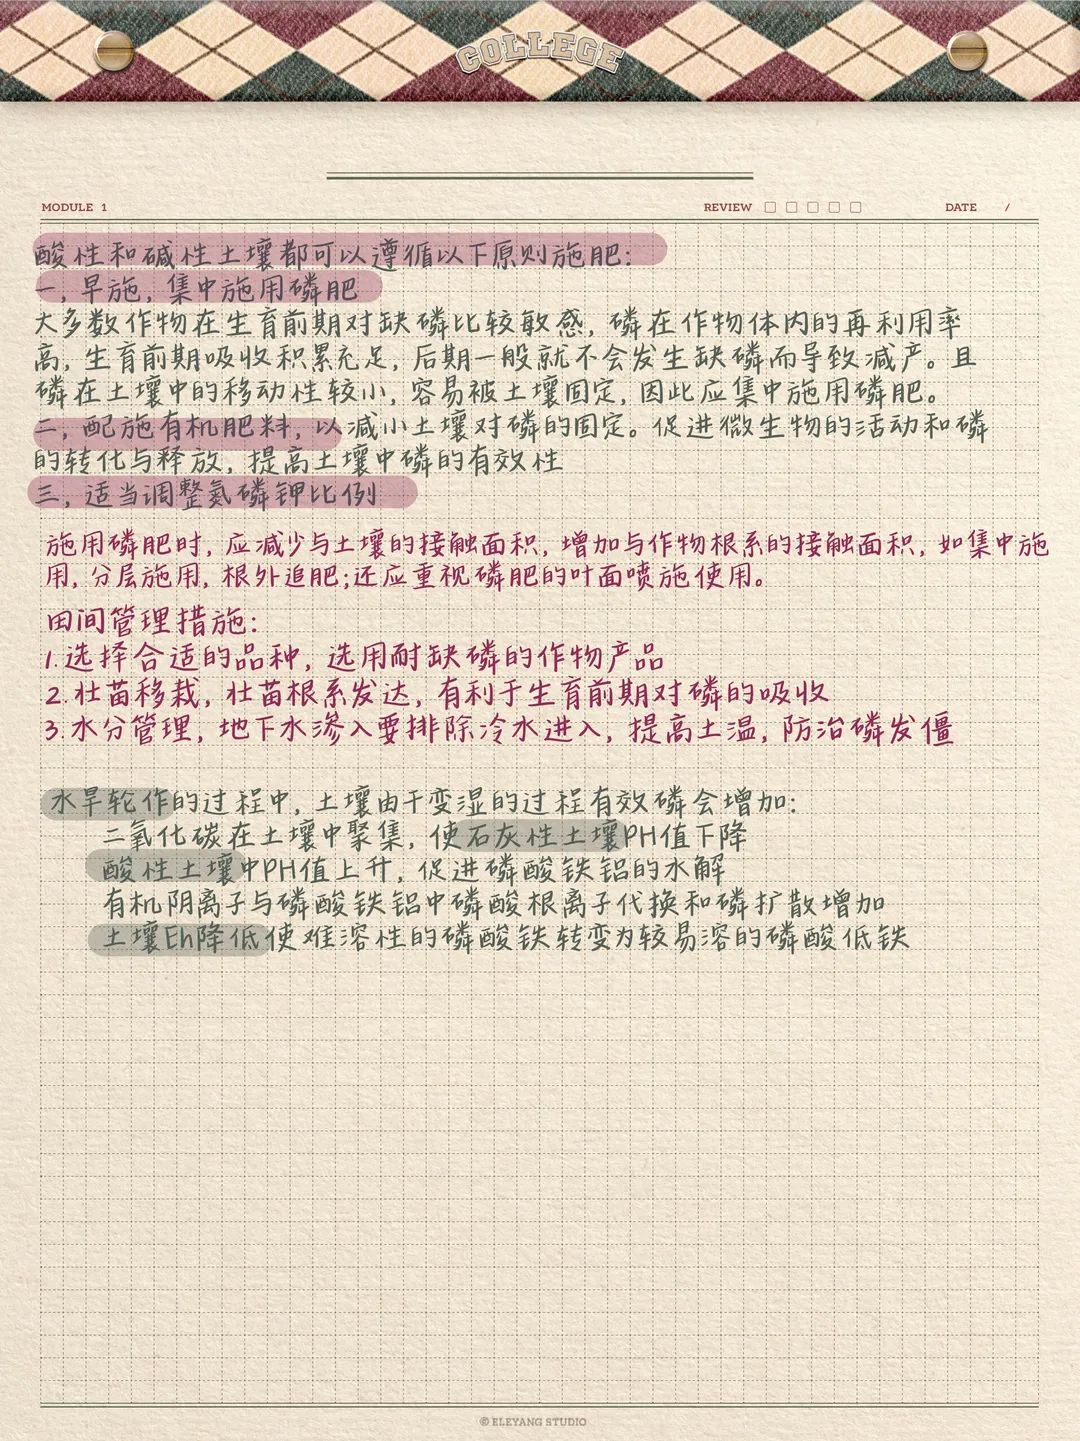 COLLEGE
MODULE 1 REVIEW DATE /
酸性和碱性土壤都可以遵循以下原则施肥:
一, 早施, 集中施用磷肥
大多数作物在生育前期对缺磷比较敏感, 磷在作物体内的再利用率
高, 生育前期吸收积累充足, 后期一般就不会发生缺磷而导致减产。且
磷在土壤中的移动性较小, 容易被土壤固定, 因此应集中施用磷肥。
二, 配施有机肥料, 以减小土壤对磷的固定。促进微生物的活动和磷
的转化与释放, 提高土壤中磷的有效性
三, 适当调整氮磷钾比例
施用磷肥时, 应减少与土壤的接触面积, 增加与作物根系的接触面积, 如集中施
用, 分层施用, 根外追肥;还应重视磷肥的叶面喷施使用。
田间管理措施:
1.选择合适的品种, 选用耐缺磷的作物产品
2.壮苗移栽, 壮苗根系发达, 有利于生育前期对磷的吸收
3.水分管理, 地下水渗入要排除冷水进入, 提高土温, 防治磷发僵
水旱轮作的过程中, 土壤由干变湿的过程有效磷会增加:
二氧化碳在土壤中聚集, 使石灰性土壤PH值下降
酸性土壤中PH值上升, 促进磷酸铁铝的水解
有机阴离子与磷酸铁铝中磷酸根离子代换和磷扩散增加
土壤Eh降低使难溶性的磷酸铁转变为较易溶的磷酸低铁
© ELEYANG STUDIO